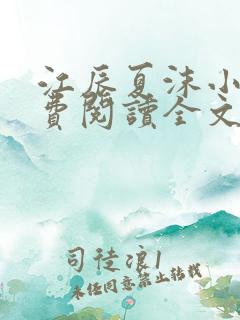 江辰夏沫小
費閱讀全文
司徒浪1
未经同意禁止转载